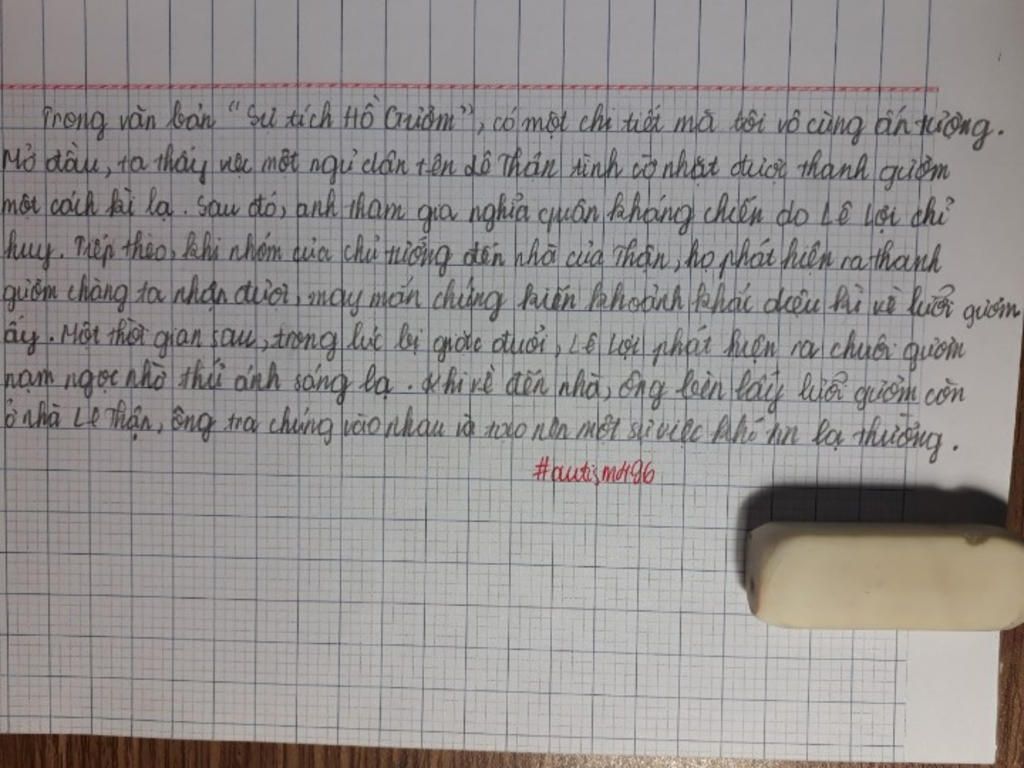 Trong văn bản "Sự tích Hồ Gươm", có một chi tiết mà tôi vô cùng ấn tượng.
Mở đầu, ta thấy việc một ngư dân tên Lê Thận tình cờ nhặt được thanh gươm
một cách kì lạ. Sau đó, anh tham gia nghĩa quân kháng chiến do Lê Lợi chỉ
huy. Tiếp theo, khi nhóm của chủ tướng đến nhà của Thận, họ phát hiện ra thanh
gươm chàng ta nhận được, may mắn chứng kiến khoảnh khắc diệu kì về lưỡi gươm
ấy. Một thời gian sau, trong lúc bị giặc đuổi, Lê Lợi phát hiện ra chuôi gươm
nạm ngọc nhờ thứ ánh sáng lạ. Khi về đến nhà, ông bèn lấy lưỡi gươm còn
ở nhà Lê Thận, ông tra chúng vào nhau và tạo nên một sự việc khó tin lạ thường.